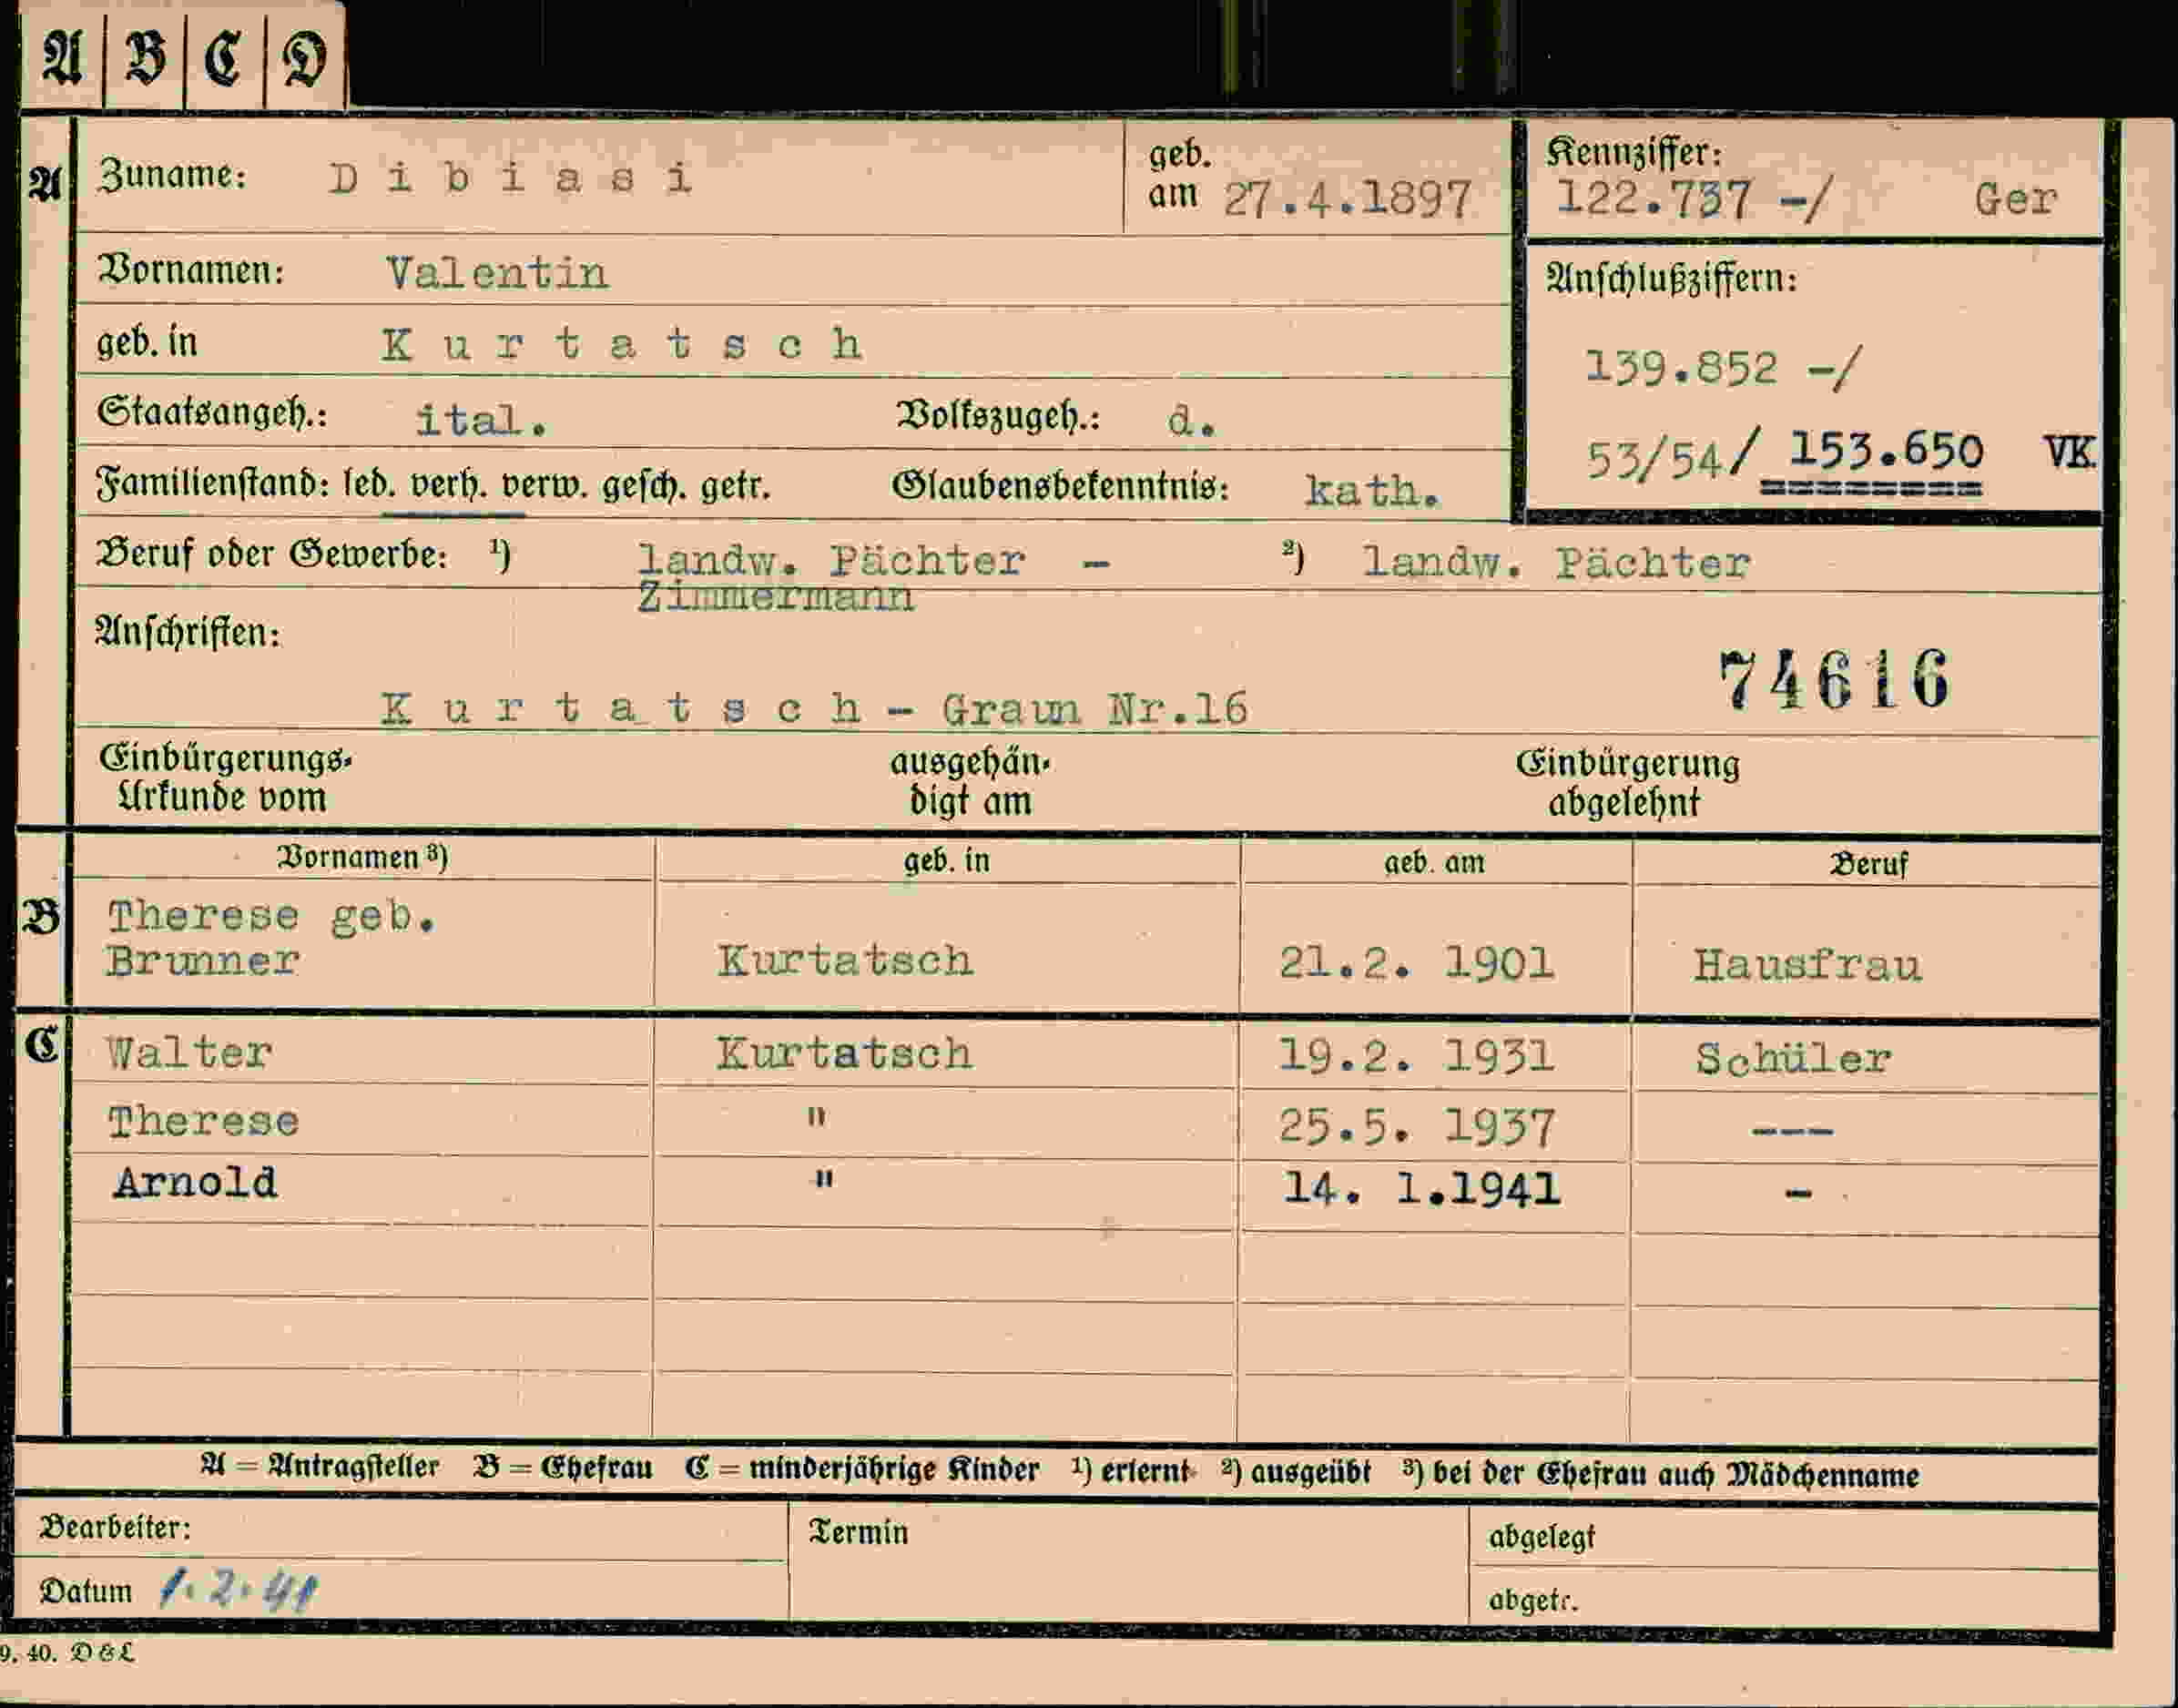 A B C D
A Zuname: Dibiasi geb. am 27.4.1897 Kennziffer: 122.737 -/ Ger
Vornamen: Valentin
geb. in Kurtatsch
Anschlußziffern:
139.852 -/
53/54/ 153.650 VK.
Staatsangeh.: ital. Volkszugeh.: d.
Familienstand: led. verh. verw. gesch. getr. Glaubensbekenntnis: kath.
Beruf oder Gewerbe: ¹) landw. Pächter - ²) landw. Pächter
Zimmermann
Anschriften:
74616
Kurtatsch - Graun Nr.16
Einbürgerungs- ausgehän- Einbürgerung
Urkunde vom digt am abgelehnt
Vornamen ³) geb. in geb. am Beruf
B Therese geb.
Brunner Kurtatsch 21.2. 1901 Hausfrau
C Walter Kurtatsch 19.2. 1931 Schüler
Therese " 25.5. 1937 ---
Arnold " 14. 1.1941 -
A = Antragsteller B = Ehefrau C = minderjährige Kinder ¹) erlernt ²) ausgeübt ³) bei der Ehefrau auch Mädchenname
Bearbeiter: Termin abgelegt
Datum 1.2.41 abgetr.
9. 40. D & L